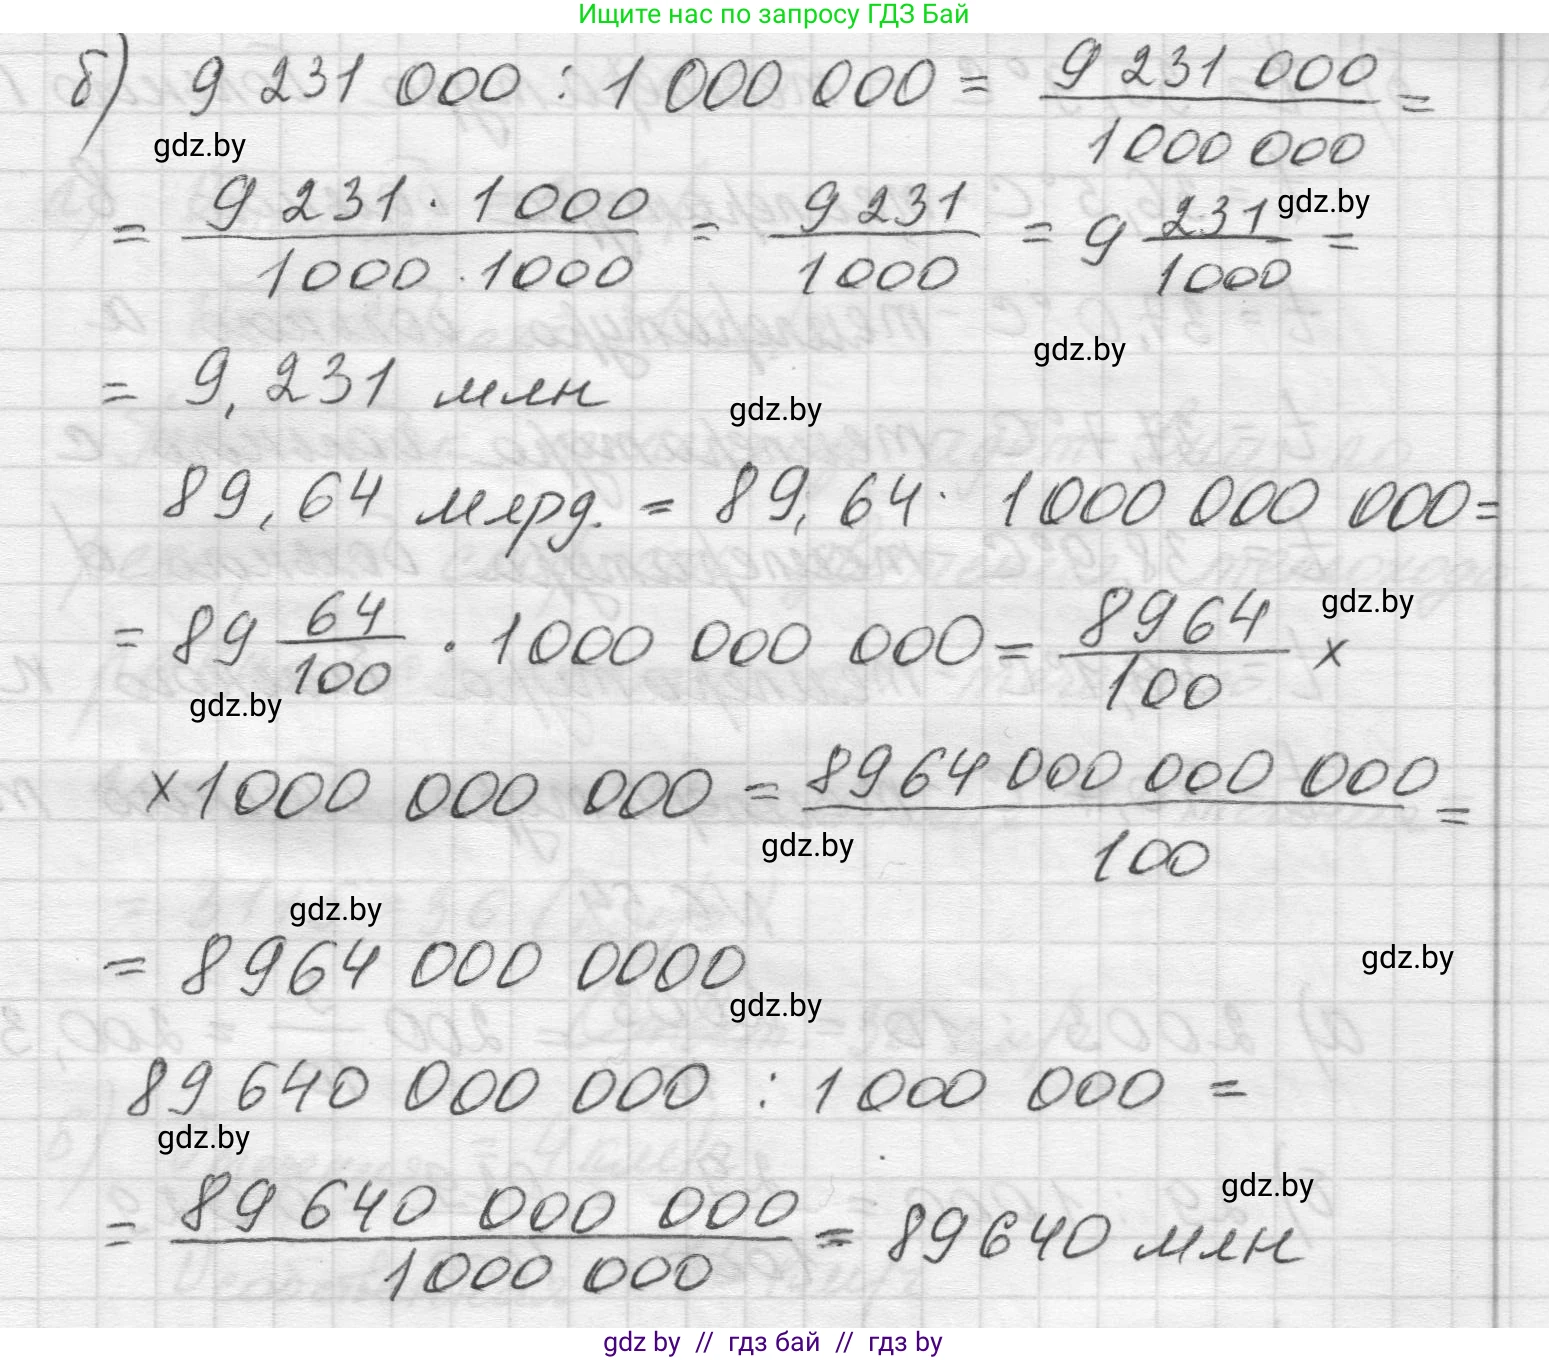 Ищите нас по запросу ГДЗ Бай
б) 9 231 000 : 1 000 000 = 9 231 000 / 1 000 000 =
gdz.by
= 9 231 · 1 000 / 1 000 · 1 000 = 9 231 / 1 000 = 9 231/1000 =
gdz.by
gdz.by
= 9,231 млн
gdz.by
89,64 млрд. = 89,64 · 1 000 000 000 =
= 89 64/100 · 1 000 000 000 = 8964/100 ×
gdz.by
gdz.by
× 1 000 000 000 = 8964 000 000 000 / 100 =
gdz.by
gdz.by
= 8964 000 0000
gdz.by
gdz.by
89 640 000 000 : 1 000 000 =
gdz.by
= 89 640 000 000 / 1 000 000 = 89 640 млн
gdz.by
gdz by // гдз бай // гдз by